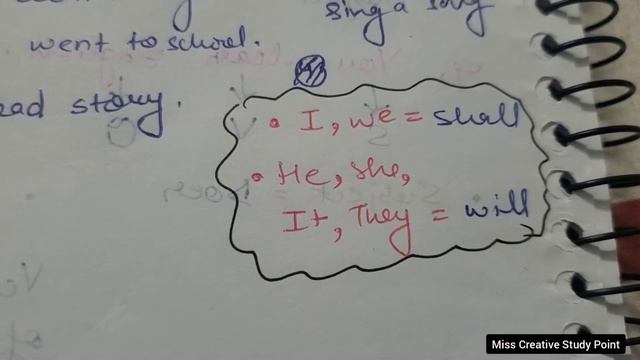 sing a song
went to school.
read story.
• I, we = shall
• He, she,
It, They = will
Miss Creative Study Point